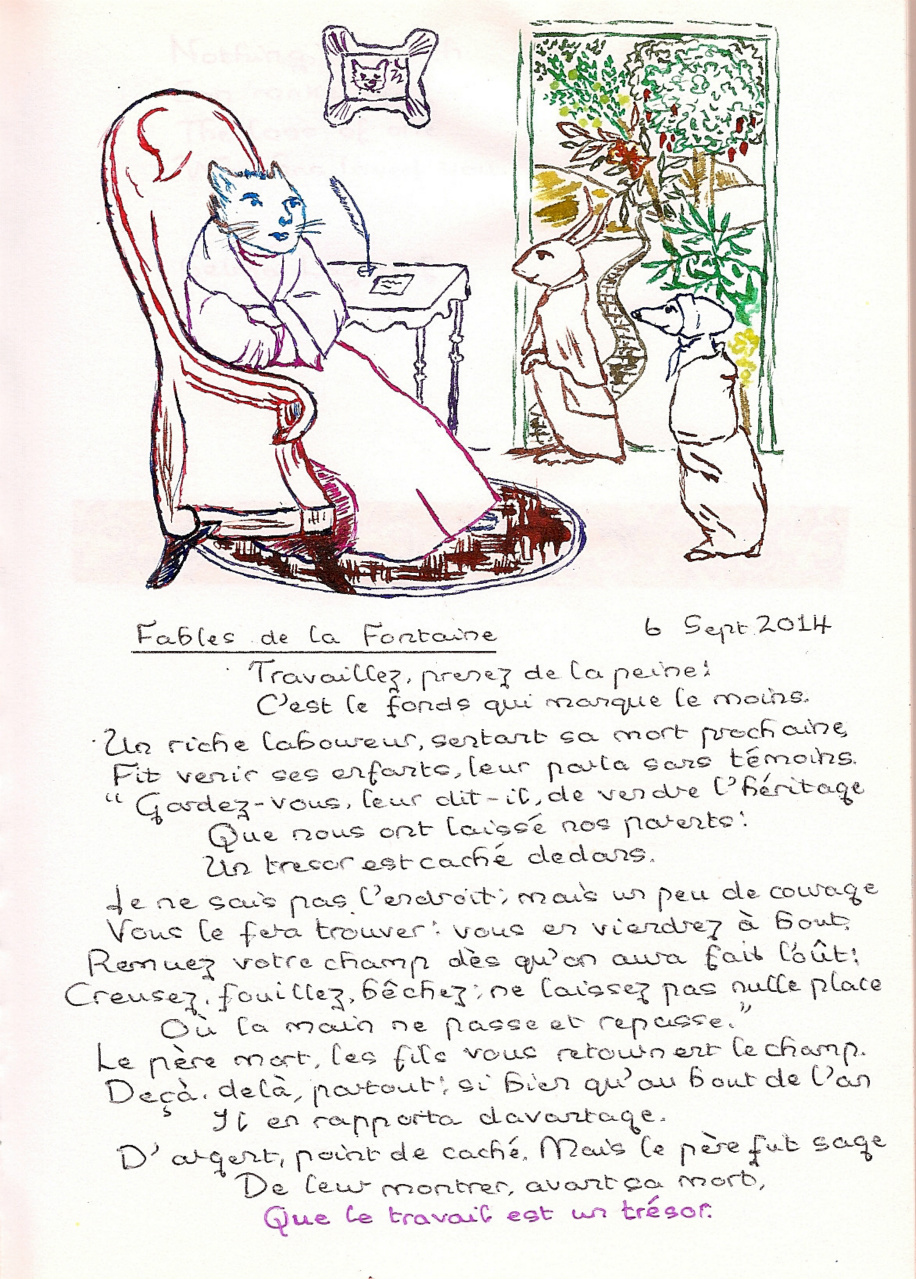 Fables de la Fontaine
6 Sept 2014
Travaillez, prenez de la peine:
C'est le fonds qui manque le moins.
Un riche laboureur, sentant sa mort prochaine,
Fit venir ses enfants, leur parla sans témoins.
"Gardez-vous, leur dit-il, de vendre l'héritage
Que nous ont laissé nos parents:
Un tresor est caché dedans.
Je ne sais pas l'endroit; mais un peu de courage
Vous le fera trouver: vous en viendrez à bout.
Remuez votre champ dès qu'on aura fait l'oût:
Creusez, fouillez, bêchez; ne laissez pas nulle place
Où la main ne passe et repasse."
Le père mort, les fils vous retournent le champ.
Deçà, delà, partout; si bien qu'au bout de l'an
Il en rapporta davantage.
D'argent, point de caché. Mais le père fut sage
De leur montrer, avant sa mort,
Que le travail est un trésor.